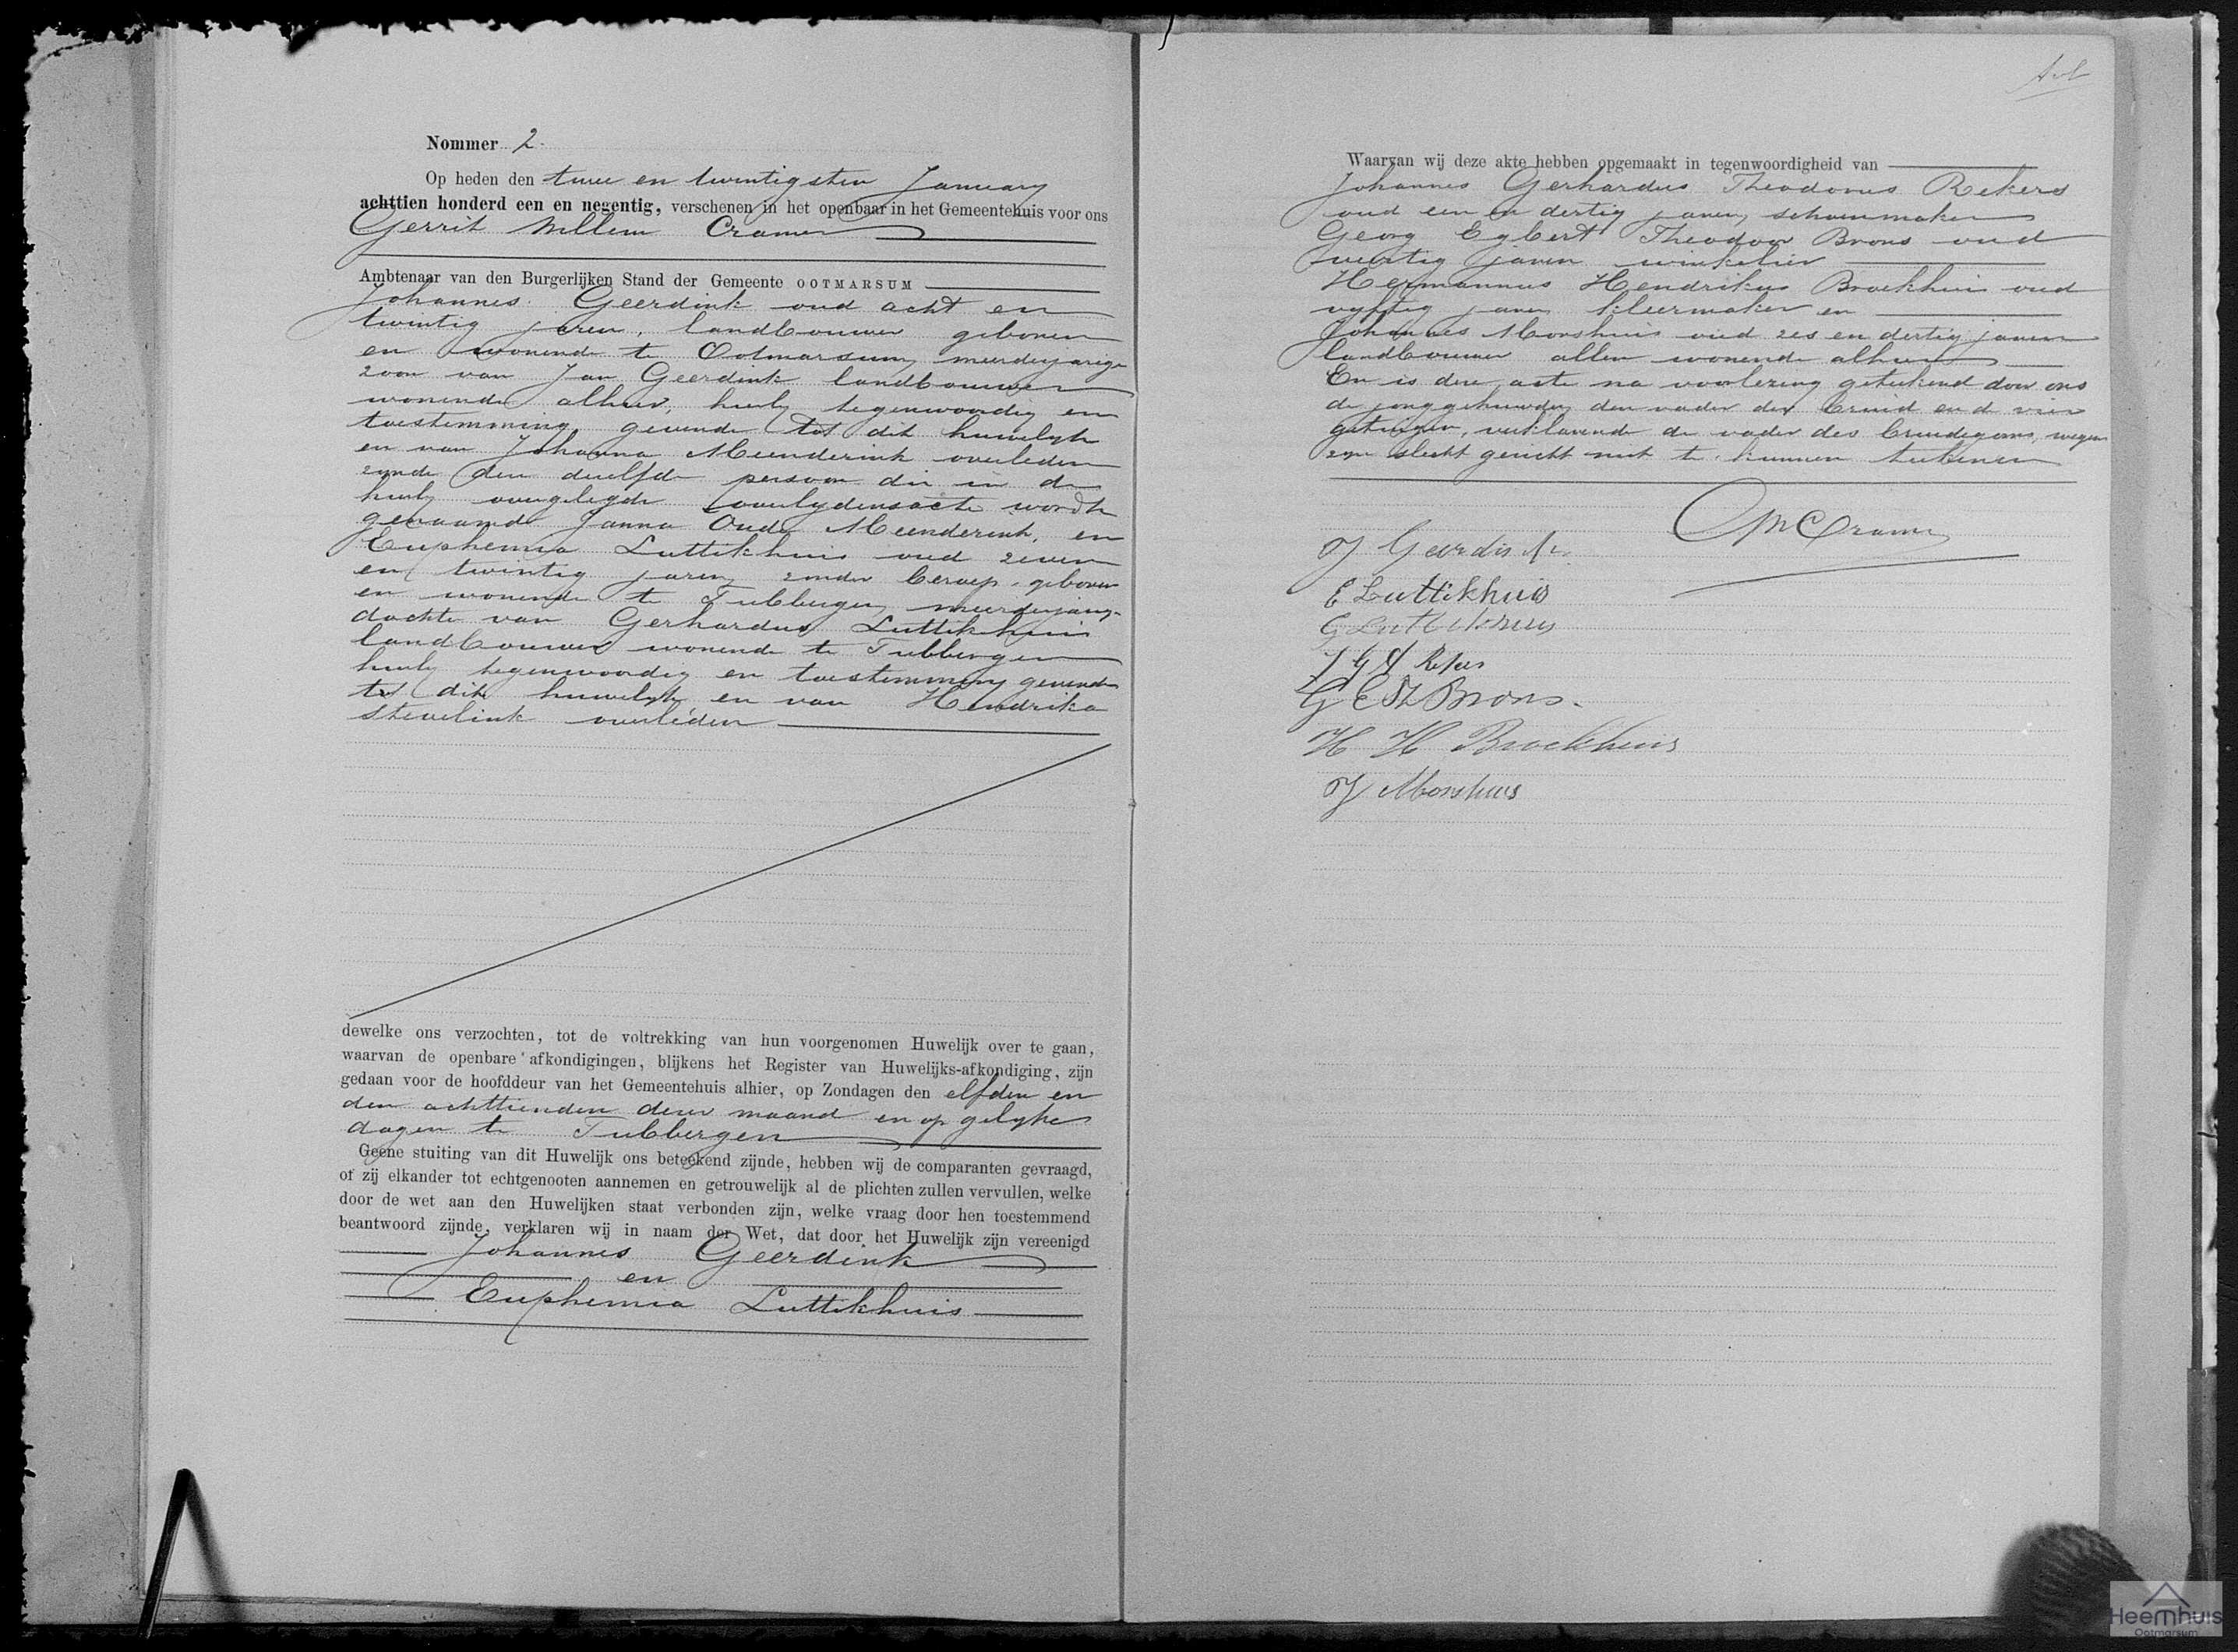 Nommer 2.
Op heden den twee en twintigsten January
achttien honderd een en negentig, verschenen in het openbaar in het Gemeentehuis voor ons
Gerrit Willem Cramer
Ambtenaar van den Burgerlijken Stand der Gemeente OOTMARSUM
Johannes Geerdink oud acht en
twintig jaren, landbouwer geboren
en wonende te Ootmarsum, meerderjarige
zoon van Jan Geerdink landbouwer
wonende alhier, hierby tegenwoordig en
toestemming gevende tot dit huwelyk
en van Johanna Meenderink overleden
zynde den duelfde persoon die in de
hierby overgelegde overlydensacte wordt
genaamd Janna Oude Meenderink, en
Euphemia Luttikhuis oud zeven
en twintig jaren, zonder beroep, geboren
en wonende te Tubbergen, meerderjarige
dochter van Gerhardus Luttikhuis
landbouwer wonende te Tubbergen
hierby tegenwoordig en toestemming gevende
tot dit huwelyk en van Hendrika
Stevelink overleden
dewelke ons verzochten, tot de voltrekking van hun voorgenomen Huwelijk over te gaan,
waarvan de openbare afkondigingen, blijkens het Register van Huwelijks-afkondiging, zijn
gedaan voor de hoofddeur van het Gemeentehuis alhier, op Zondagen den elfden en
den achttienden dezer maand en op gelyke
dagen te Tubbergen
Geene stuiting van dit Huwelijk ons beteekend zijnde, hebben wij de comparanten gevraagd,
of zij elkander tot echtgenooten aannemen en getrouwelijk al de plichten zullen vervullen, welke
door de wet aan den Huwelijken staat verbonden zijn, welke vraag door hen toestemmend
beantwoord zijnde, verklaren wij in naam der Wet, dat door het Huwelijk zijn vereenigd
Johannes Geerdink
en
Euphemia Luttikhuis
Waarvan wij deze akte hebben opgemaakt in tegenwoordigheid van
Johannes Gerhardus Theodorus Rekers
oud een en dertig jaren, schoenmaker
Georg Egbert Theodoor Brons oud
veertig jaren winkelier
Hermannus Hendrikus Broekhuis oud
vyftig jaren kleermaker en
Johannes Morshuis oud zes en dertig jaren
landbouwer allen wonende alhier
En is deze acte na voorlezing geteekend door ons
de jonggehuwden den vader der bruid en de vier
getuigen, verklarende de vader des bruidegoms, wegens
zyn slecht gezicht niet te kunnen teekenen
GWCramer
J Geerdink
E Luttikhuis
G Luttikhuis
J G T Rekers
G E Th Brons.
H H Broekhuis
J Morshuis
Heemhuis
Ootmarsum